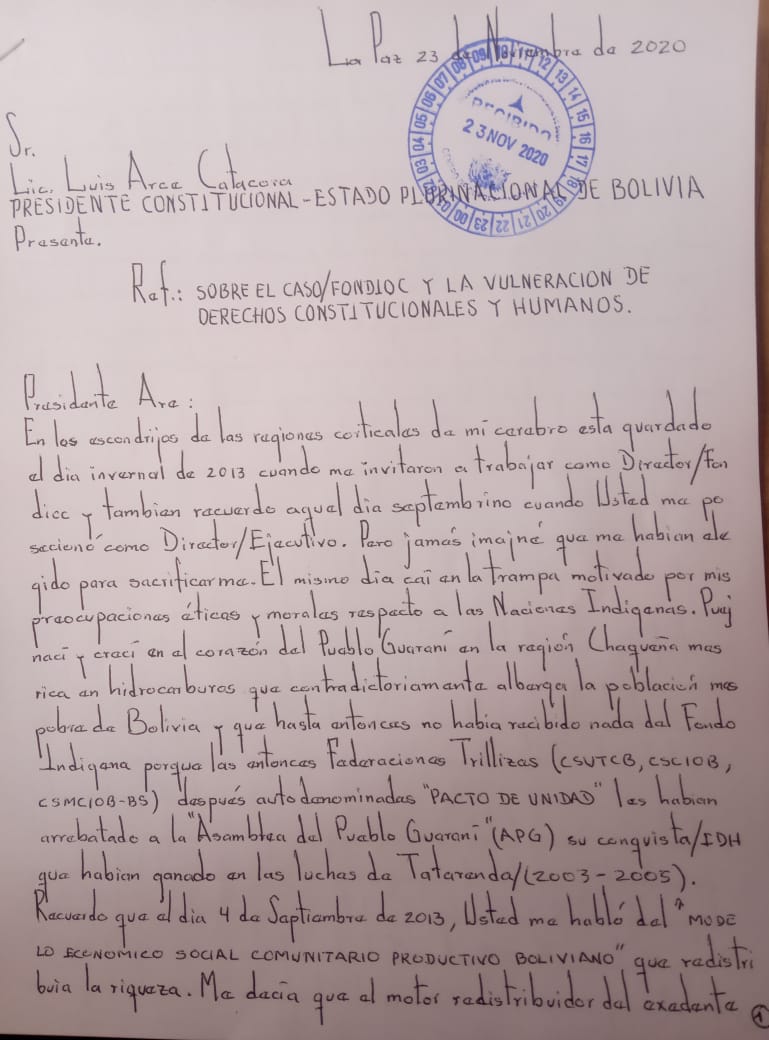 La Paz 23 de Noviembre de 2020
RECIBIDO
23 NOV 2020
00 01 02 03 04 05 06 07 08 09 10 11 12 13 14 15 16 17 18 19 20 21 22 23
Sr.
Lic. Luis Arce Catacora
PRESIDENTE CONSTITUCIONAL - ESTADO PLURINACIONAL DE BOLIVIA
Presente.
Ref.: SOBRE EL CASO/FONDIOC Y LA VULNERACION DE
DERECHOS CONSTITUCIONALES Y HUMANOS.
Presidente Arce:
En los escondrijos de las regiones corticales de mi cerebro esta guardado
el dia invernal de 2013 cuando me invitaron a trabajar como Director/Fon
dioc y tambien recuerdo aquel dia septembrino cuando Usted me po
secionó como Director/Ejecutivo. Pero jamás imajné que me habian ele
gido para sacrificarme. El mismo dia caí en la trampa motivado por mis
preocupaciones éticas y morales respecto a las Naciones Indigenas. Puej
nací y crecí en el corazón del Pueblo Guaraní en la región Chaqueña mas
rica en hidrocarburos que contradictoriamente alberga la población mas
pobre de Bolivia y que hasta entonces no habia recibido nada del Fondo
Indigena porque las entonces Federaciones Trillizas (CSUTCB, CSCIOB,
CSMCIOB-BS) después autodenominadas "PACTO DE UNIDAD" les habian
arrebatado a la "Asamblea del Pueblo Guaraní" (APG) su conquista/IDH
que habian ganado en las luchas de Tatarenda/(2003-2005).
Recuerdo que el dia 4 de Septiembre de 2013, Usted me habló del "MODE
LO ECONOMICO SOCIAL COMUNITARIO PRODUCTIVO BOLIVIANO" que redistri
buia la riqueza. Me decía que el motor redistribuidor del exedente
1